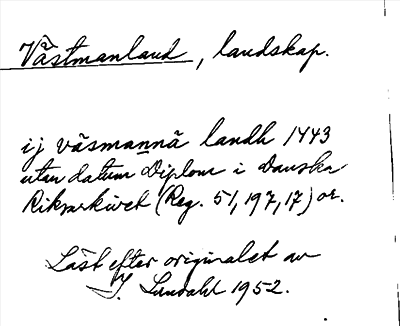 Västmanland, landskap.
ij väsmannä landh 1443
utan datum Diplom i Danska
Riksarkivet (Reg. 51, 197, 17) or.
Läst efter originalet av
I. Lundahl 1952.